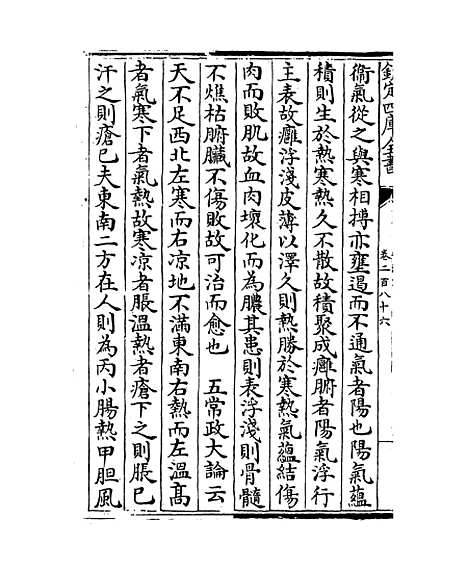 欽定四庫全書
卷二百八十六
衞氣從之與寒相搏亦壅遏而不通氣者陽也陽氣蘊
積則生於熱寒熱久不散故積聚成癰腑者陽氣浮行
主表故癰浮淺皮薄以澤久則熱勝於寒熱氣蘊結傷
肉而敗肌故血肉壞化而為膿其患則表浮淺則骨髓
不燋枯腑臟不傷敗故可治而愈也　五常政大論云
天不足西北左寒而右凉地不滿東南右熱而左溫髙
者氣寒下者氣熱故寒凉者脹溫熱者瘡下之則脹已
汗之則瘡已夫東南二方在人則為丙小腸熱甲胆風